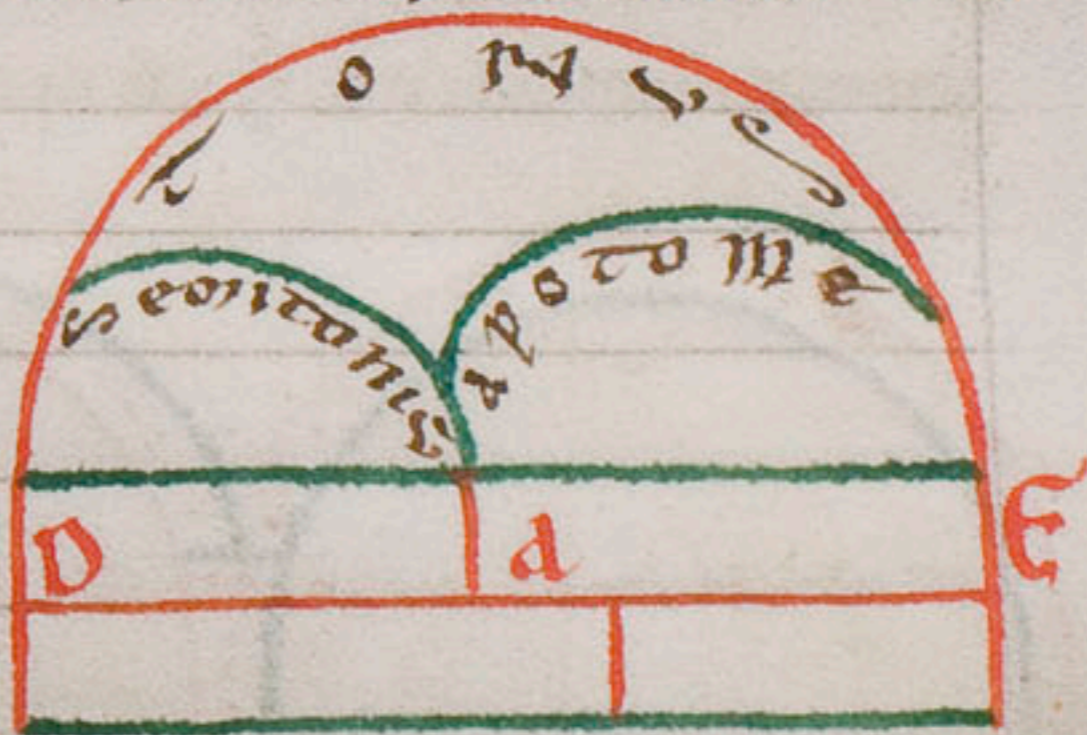 Tonus
Semitoniū
apotome
D d E